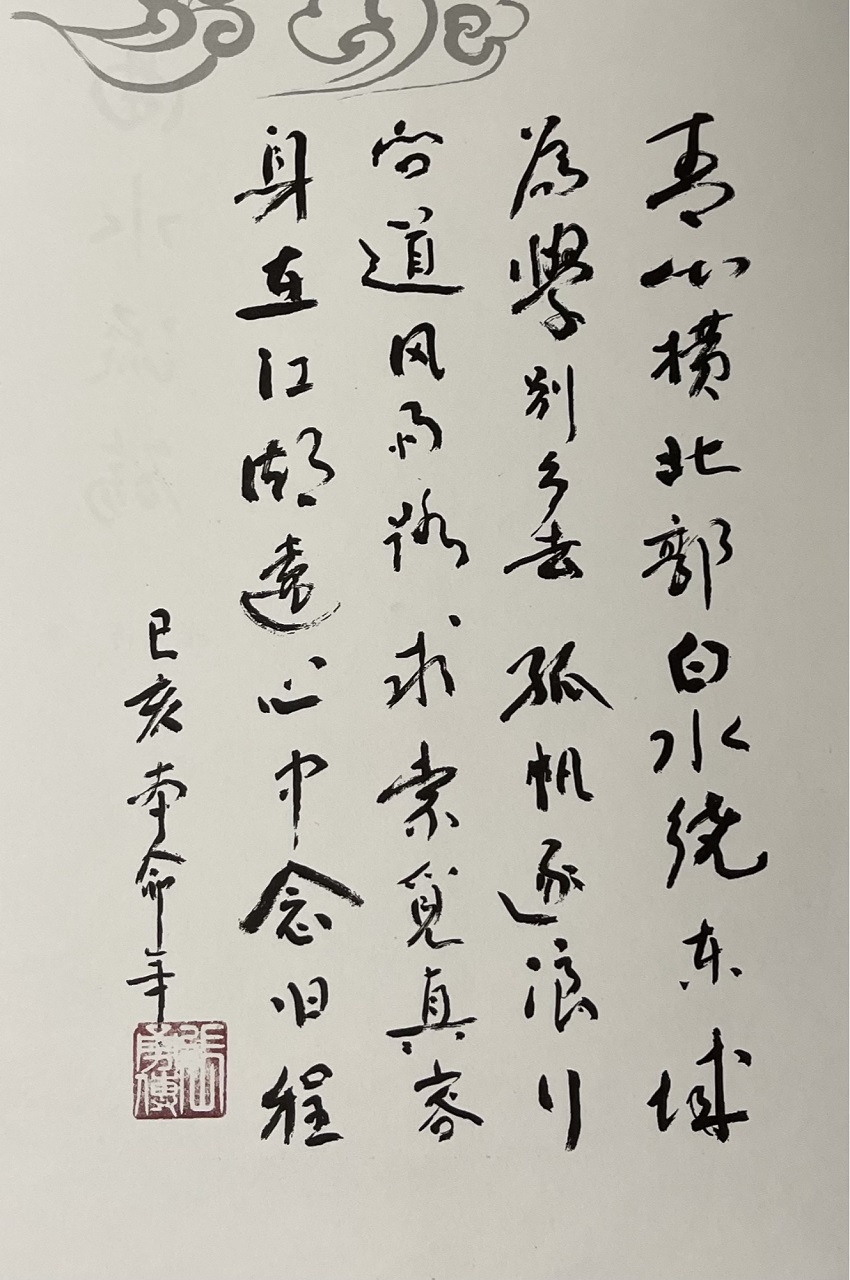 青山横北郭白水绕东城
為學别乡去孤帆逐浪行
问道风雨路求索觅真容
身在江湖遠心中念旧程
己亥本命年